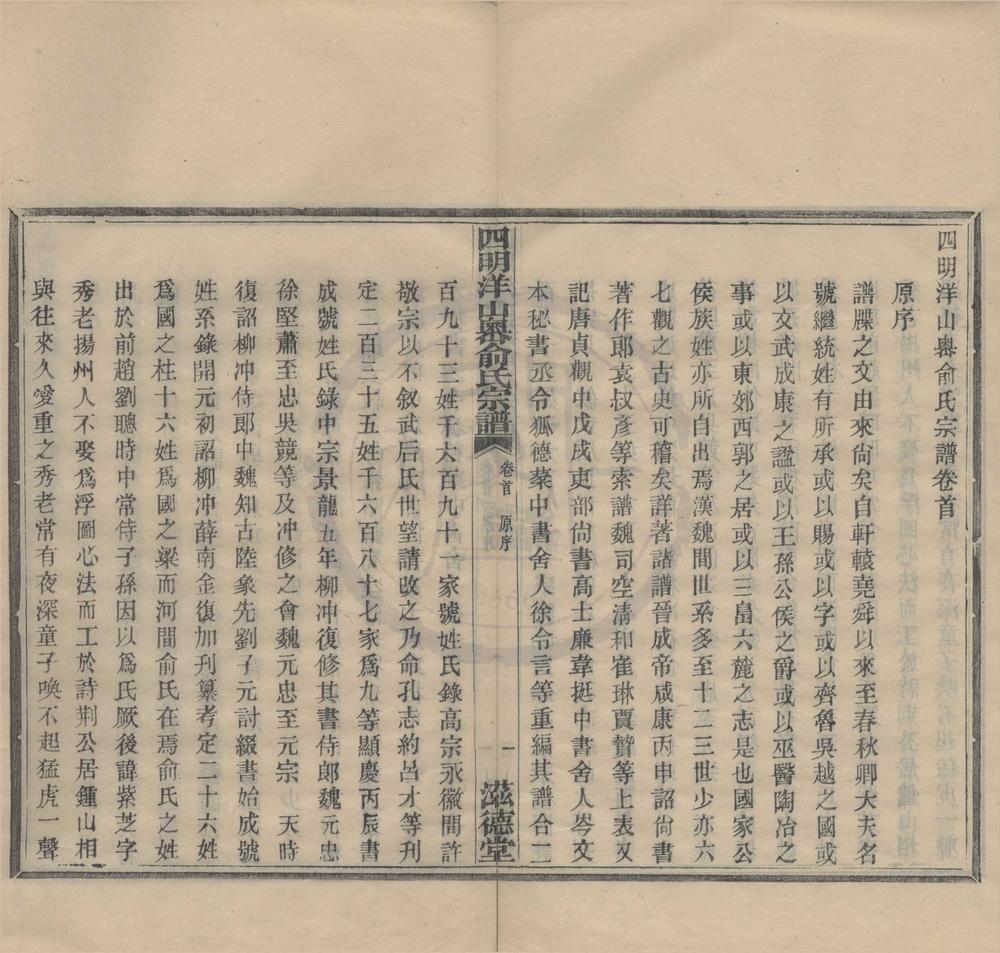 四明洋山嶴俞氏宗譜卷首
原序
譜牒之文由來尙矣自軒轅堯舜以來至春秋卿大夫名
號繼統姓有所承或以賜或以字或以齊魯吳越之國或
以文武成康之謚或以王孫公侯之爵或以巫醫陶冶之
事或以東郊西郭之居或以三畠六麓之志是也國家公
侯族姓亦所自出焉漢魏間世系多至十二三世少亦六
七觀之古史可稽矣詳著諸譜晉成帝咸康丙申詔尙書
著作郞袁叔彥等索譜魏司空淸和崔琳賈贊等上表又
記唐貞觀中戊戌吏部尙書高士廉韋挺中書舍人岑文
本秘書丞令狐德棻中書舍人徐令言等重編其譜合二
四明洋山嶴俞氏宗譜
卷首
原序
一
滋德堂
百九十三姓千六百九十一家號姓氏錄高宗永徽間許
敬宗以不叙武后氏世望請改之乃命孔志約呂才等刊
定二百三十五姓千六百八十七家爲九等顯慶丙辰書
成號姓氏錄中宗景龍五年柳冲復修其書侍郞魏元忠
徐堅蕭至忠吳競等及冲修之會魏元忠至元宗先天時
復詔柳冲侍郞中魏知古陸象先劉子元討綴書始成號
姓系錄開元初詔柳冲薛南金復加刊纂考定二十六姓
爲國之柱十六姓爲國之粱而河間俞氏在焉俞氏之姓
出於前趙劉聰時中常侍子孫因以爲氏厥後諱紫芝字
秀老揚州人不娶爲浮圖心法而工於詩荆公居鍾山相
與往來久愛重之秀老常有夜深童子喚不起猛虎一聲